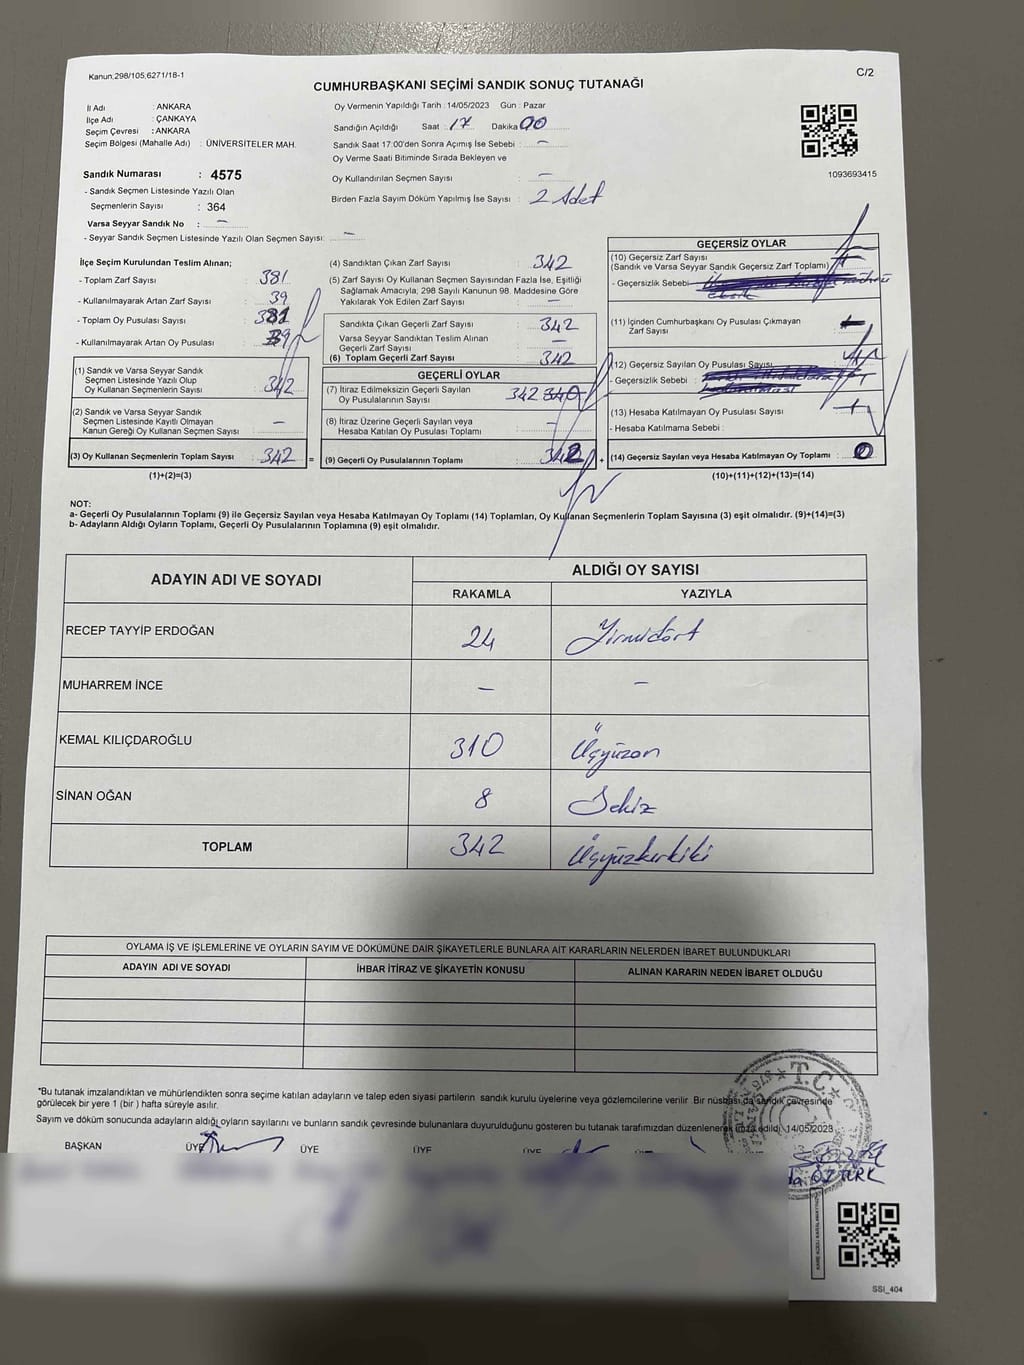 Kanun,298/105,6271/18-1
C/2
CUMHURBAŞKANI SEÇİMİ SANDIK SONUÇ TUTANAĞI
İl Adı : ANKARA
İlçe Adı : ÇANKAYA
Seçim Çevresi : ANKARA
Seçim Bölgesi (Mahalle Adı) : ÜNİVERSİTELER MAH.
Sandık Numarası : 4575
- Sandık Seçmen Listesinde Yazılı Olan
Seçmenlerin Sayısı : 364
Varsa Seyyar Sandık No : –
- Seyyar Sandık Seçmen Listesinde Yazılı Olan Seçmen Sayısı: –
Oy Vermenin Yapıldığı Tarih : 14/05/2023 Gün : Pazar
Sandığın Açıldığı Saat : 17 Dakika 00
Sandık Saat 17:00'den Sonra Açımış İse Sebebi : –
Oy Verme Saati Bitiminde Sırada Bekleyen ve
Oy Kullandırılan Seçmen Sayısı : –
Birden Fazla Sayım Döküm Yapılmış İse Sayısı : 2 Adet
1093693415
İlçe Seçim Kurulundan Teslim Alınan;
- Toplam Zarf Sayısı : 381
- Kullanılmayarak Artan Zarf Sayısı : 39
- Toplam Oy Pusulası Sayısı : 381
- Kullanılmayarak Artan Oy Pusulası : 39
(1) Sandık ve Varsa Seyyar Sandık
Seçmen Listesinde Yazılı Olup
Oy Kullanan Seçmenlerin Sayısı : 342
(2) Sandık ve Varsa Seyyar Sandık
Seçmen Listesinde Kayıtlı Olmayan
Kanun Gereği Oy Kullanan Seçmen Sayısı : –
(3) Oy Kullanan Seçmenlerin Toplam Sayısı : 342 =
(1)+(2)=(3)
(4) Sandıktan Çıkan Zarf Sayısı : 342
(5) Zarf Sayısı Oy Kullanan Seçmen Sayısından Fazla İse, Eşitliği
Sağlamak Amacıyla; 298 Sayılı Kanunun 98. Maddesine Göre
Yakılarak Yok Edilen Zarf Sayısı : –
Sandıkta Çıkan Geçerli Zarf Sayısı : 342
Varsa Seyyar Sandıktan Teslim Alınan
Geçerli Zarf Sayısı : –
(6) Toplam Geçerli Zarf Sayısı : 342
GEÇERLİ OYLAR
(7) İtiraz Edilmeksizin Geçerli Sayılan
Oy Pusulalarının Sayısı : 342 340
(8) İtiraz Üzerine Geçerli Sayılan veya
Hesaba Katılan Oy Pusulası Toplamı : –
(9) Geçerli Oy Pusulalarının Toplamı : 342 +
GEÇERSİZ OYLAR
(10) Geçersiz Zarf Sayısı
(Sandık ve Varsa Seyyar Sandık Geçersiz Zarf Toplamı) :
- Geçersizlik Sebebi :
(11) İçinden Cumhurbaşkanı Oy Pusulası Çıkmayan
Zarf Sayısı :
(12) Geçersiz Sayılan Oy Pusulası Sayısı :
- Geçersizlik Sebebi :
(13) Hesaba Katılmayan Oy Pusulası Sayısı :
- Hesaba Katılmama Sebebi :
(14) Geçersiz Sayılan veya Hesaba Katılmayan Oy Toplamı : 0
(10)+(11)+(12)+(13)=(14)
NOT:
a- Geçerli Oy Pusulalarının Toplamı (9) ile Geçersiz Sayılan veya Hesaba Katılmayan Oy Toplamı (14) Toplamları, Oy Kullanan Seçmenlerin Toplam Sayısına (3) eşit olmalıdır. (9)+(14)=(3)
b- Adayların Aldığı Oyların Toplamı, Geçerli Oy Pusulalarının Toplamına (9) eşit olmalıdır.
ADAYIN ADI VE SOYADI
ALDIĞI OY SAYISI
RAKAMLA YAZIYLA
RECEP TAYYİP ERDOĞAN 24 Yirmidört
MUHARREM İNCE – –
KEMAL KILIÇDAROĞLU 310 Üçyüzon
SİNAN OĞAN 8 Sekiz
TOPLAM 342 Üçyüzkırkiki
OYLAMA İŞ VE İŞLEMLERİNE VE OYLARIN SAYIM VE DÖKÜMÜNE DAİR ŞİKAYETLERLE BUNLARA AİT KARARLARIN NELERDEN İBARET BULUNDUKLARI
ADAYIN ADI VE SOYADI İHBAR İTİRAZ VE ŞİKAYETİN KONUSU ALINAN KARARIN NEDEN İBARET OLDUĞU
*Bu tutanak imzalandıktan ve mühürlendikten sonra seçime katılan adayların ve talep eden siyasi partilerin sandık kurulu üyelerine veya gözlemcilerine verilir. Bir nüshası da sandık çevresinde
görülecek bir yere 1 (bir) hafta süreyle asılır.
Sayım ve döküm sonucunda adayların aldığı oyların sayılarını ve bunların sandık çevresinde bulunanlara duyurulduğunu gösteren bu tutanak tarafımızdan düzenlenerek imza edildi. 14/05/2023
BAŞKAN ÜYE ÜYE ÜYE ÜYE
ÖZTÜRK
T.C.
SSI_404